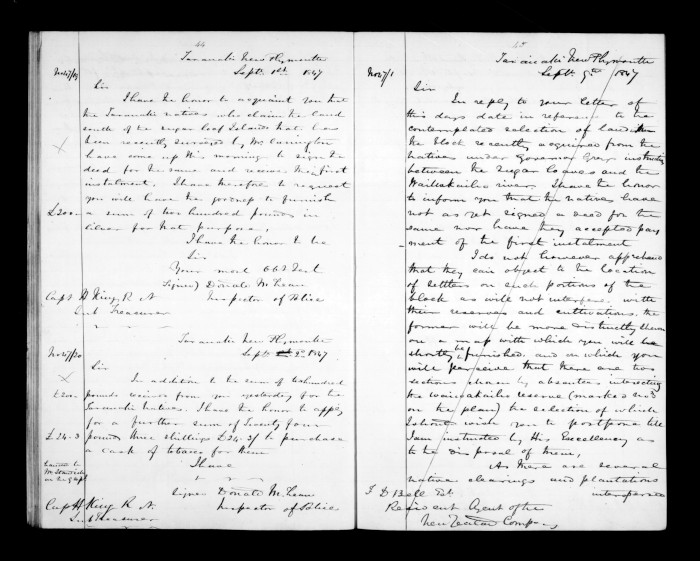 44
Taranaki New Plymouth
Septr 1st 1847
No 47/19
Sir
I have the honor to acquaint you that
the Taranaki natives who claim the land
south of the sugar loaf Islands that has
been recently surveyed by Mr Carrington
have come up this morning to sign the
deed for the same and receive the first
instalment. I have therefore to request
you will have the goodness to furnish
£200 a sum of two hundred pounds in
silver for that purpose,
I have the honor to be
Sir
Your most obt Servt
Signed) Donald McLean
Inspector of Police
Capt H King R. N.
Sub Treasurer
Taranaki New Plymouth
Septr 2d 1847
No 47/20
Sir
In addition to the sum of two hundred
£200 pounds received from you yesterday for the
Taranaki natives. I have the honor to apply
for a further sum of Twenty four
£24.3 pounds three shillings £24.3/ to purchase
a cask of tobacco for them.
I have
Signed Donald McLean
Inspector of Police
Capt H King R. N.
Sub Treasurer
45
Taranaki New Plymouth
Septr 9th 1847
No 47/1
Sir
In reply to your letter of
this days date in reference to the
contemplated selection of land in
the block recently acquired from the
natives under Governor Greys instructions
between the Sugar Loaves and the
Waiwakaiho river I have the honor
to inform you that the natives have
not as yet signed a deed for the
same nor have they accepted pay
ment of the first instalment
I do not however apprehend
that they can object to the location
of settlers on such portions of the
block as will not interfere with
their reserves and cultivations. the
former will be more distinctly shewn
on a map with which you will be
shortly be furnished. and on which you
will perceive that there are two
sections chosen by absentees intersecting
the waiwakaiho reserve (marked
on the plan) the selection of which
I should wish you to postpone till
I am instructed by His Excellency as
to the disposal of them,
As there are several
native clearings and plantations
interspersed
F D Bell Esqr
Resident Agent of the
New Zealand Company